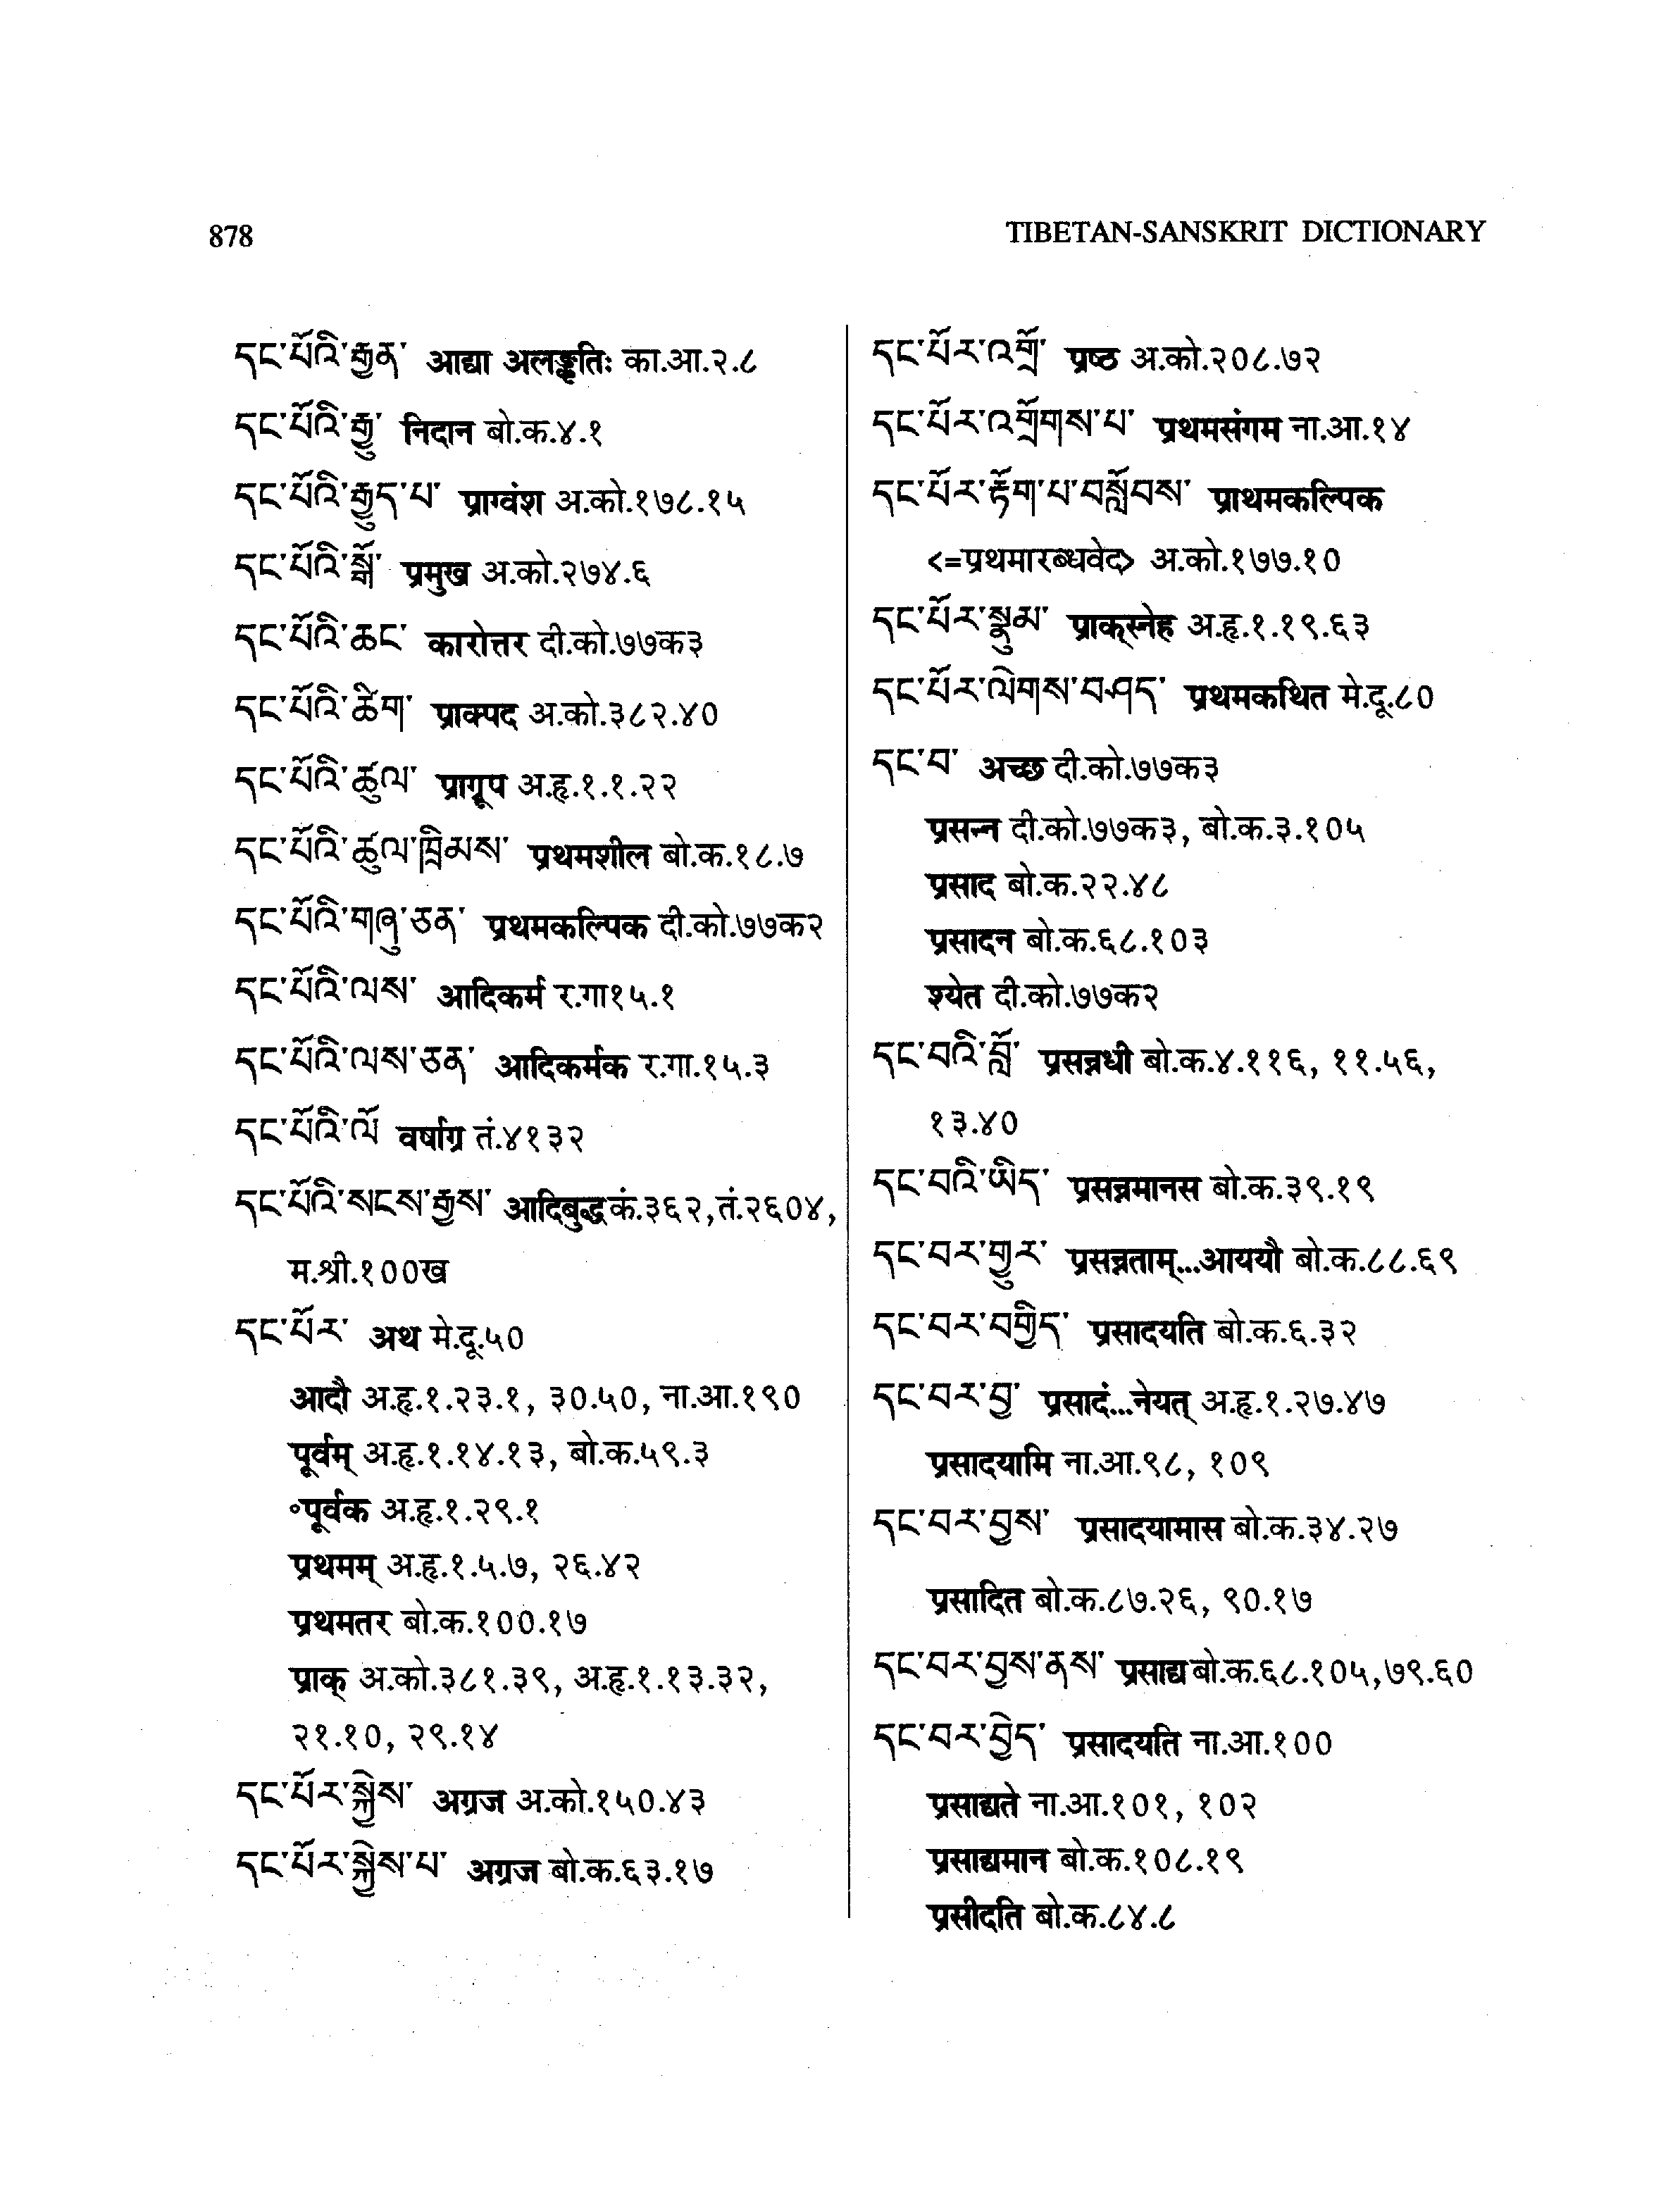 878
TIBETAN-SANSKRIT DICTIONARY
དང་པོའི་རྒྱན་ आद्या अलङ्कृतिः का.आ.२.८
དང་པོའི་རྒྱུ་ निदान बो.क.४.१
དང་པོའི་རྒྱུད་པ་ प्राग्वंश अ.को.१७८.१५
དང་པོའི་སྒོ་ प्रमुख अ.को.२७४.६
དང་པོའི་ཆང་ कारोत्तर दी.को.७७क३
དང་པོའི་ཚིག་ प्राक्पद अ.को.३८२.४०
དང་པོའི་ཚུལ་ प्राग्रूप अ.हृ.१.१.२२
དང་པོའི་ཚུལ་ཁྲིམས་ प्रथमशील बो.क.१८.७
དང་པོའི་གཞུ་ཅན་ प्रथमकल्पिक दी.को.७७क२
དང་པོའི་ལས་ आदिकर्म र.गा१५.१
དང་པོའི་ལས་ཅན་ आदिकर्मक र.गा.१५.३
དང་པོའི་ལོ वर्षाग्र तं.४१३२
དང་པོའི་སངས་རྒྱས་ आदिबुद्ध कं.३६२,तं.२६०४,
म.श्री.१००ख
དང་པོར་ अथ मे.दू.५०
आदौ अ.हृ.१.२३.१, ३०.५०, ना.आ.१९०
पूर्वम् अ.हृ.१.१४.१३, बो.क.५९.३
॰पूर्वक अ.हृ.१.२९.१
प्रथमम् अ.हृ.१.५.७, २६.४२
प्रथमतर बो.क.१००.१७
प्राक् अ.को.३८१.३९, अ.हृ.१.१३.३२,
२१.१०, २९.१४
དང་པོར་སྐྱེས་ अग्रज अ.को.१५०.४३
དང་པོར་སྐྱེས་པ་ अग्रज बो.क.६३.१७
དང་པོར་འགྲོ་ प्रष्ठ अ.को.२०८.७२
དང་པོར་འགྲོགས་པ་ प्रथमसंगम ना.आ.१४
དང་པོར་རྟོག་པ་བསློབས་ प्राथमकल्पिक
<=प्रथमारब्धवेद> अ.को.१७७.१०
དང་པོར་སྣུམ་ प्राक्‌स्नेह अ.हृ.१.१९.६३
དང་པོར་ལེགས་བཤད་ प्रथमकथित मे.दू.८०
དང་བ་ अच्छ दी.को.७७क३
प्रसन्न दी.को.७७क३, बो.क.३.१०५
प्रसाद बो.क.२२.४८
प्रसादन बो.क.६८.१०३
श्येत दी.को.७७क२
དང་བའི་བློ་ प्रसन्नधी बो.क.४.११६, ११.५६,
१३.४०
དང་བའི་ཡིད་ प्रसन्नमानस बो.क.३९.१९
དང་བར་གྱུར་ प्रसन्नताम्...आययौ बो.क.८८.६९
དང་བར་བགྱིད་ प्रसादयति बो.क.६.३२
དང་བར་བྱ་ प्रसादं...नेयत् अ.हृ.१.२७.४७
प्रसादयामि ना.आ.९८, १०९
དང་བར་བྱས་ प्रसादयामास बो.क.३४.२७
प्रसादित बो.क.८७.२६, ९०.१७
དང་བར་བྱས་ནས་ प्रसाद्य बो.क.६८.१०५,७९.६०
དང་བར་བྱེད་ प्रसादयति ना.आ.१००
प्रसाद्यते ना.आ.१०१, १०२
प्रसाद्यमान बो.क.१०८.१९
प्रसीदति बो.क.८४.८